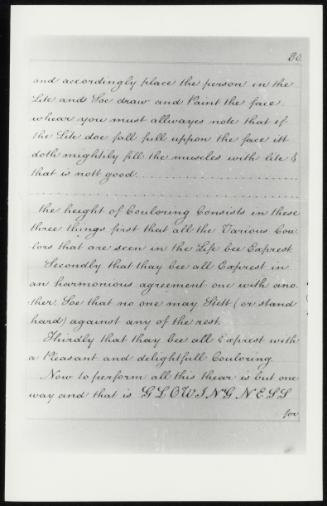 20.
and accordingly place the person in the
Lite and Soe draw and Paint the face.
whear you must allwayes note that if
the Lite doe fall full uppon the face itt
doth mightily fill the muscles with lite &
that is nott good.
the height of Couloring Consists in these
three things first that all the Various Cou-
lors that are seen in the Life bee Exprest
Secondly that thay bee all Exprest in
an harmonious agreement one with ano-
ther. Soe that no one may Stett (or stand
hard) against any of the rest.
Thirdly that thay bee all Exprest with
a Pleasant and delightfull Couloring.
Now to perform all this thear is but one
way and that is GLOWINGNESS
for